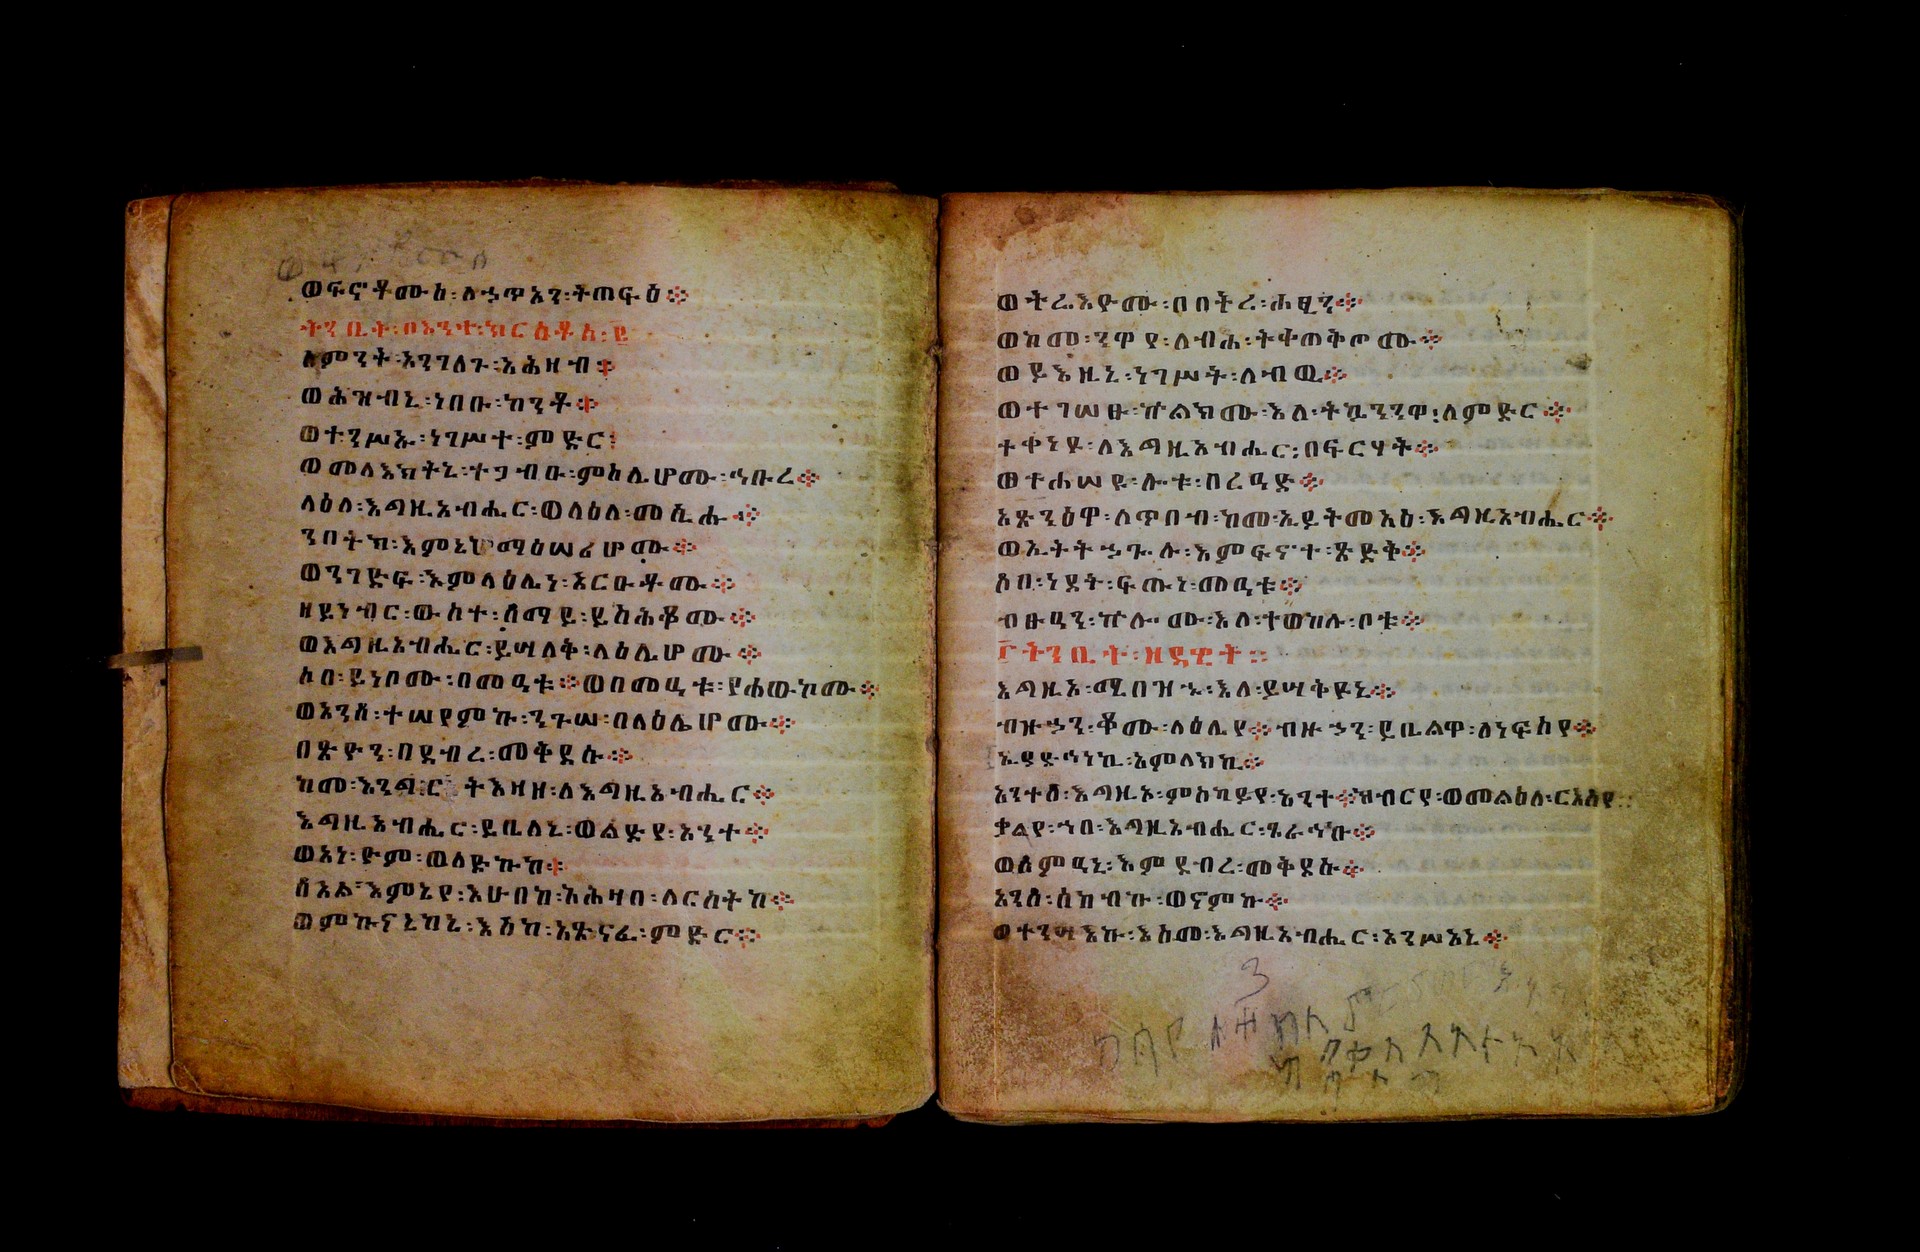 ወፍኖቶሙሰ፡ለኃጥአን፡ትጠፍዕ፨
ትንቢት፡በእንተ፡ክርስቶስ፡፪
ለምንት፡አንገለጉ፡አሕዛብ፨
ወሕዝብኒ፡ነበቡ፡ከንቶ፨
ወተንሥኡ፡ነገሥተ፡ምድር፡
ወመላእክትኒ፡ተጋብዑ፡ምስሌሆሙ፡ኀቡረ፨
ላዕለ፡እግዚአብሔር፡ወላዕለ፡መሲሑ፨
ንበትክ፡እምኔነ፡ማዕሠሪሆሙ፨
ወንገድፍ፡እምላዕሌነ፡አርዑቶሙ፨
ዘይነብር፡ውስተ፡ሰማይ፡ይስሕቆሙ፨
ወእግዚአብሔር፡ይሣለቅ፡ላዕሌሆሙ፨
ሶበ፡ይነቦሙ፡በመዓቱ፨ወበመዓቱ፡የሐውኮሙ፨
ወአንሰ፡ተሠየምኩ፡ንጉሠ፡በላዕሌሆሙ፨
በጽዮን፡በደብረ፡መቅደሱ፨
ከመ፡እንግር፡ትእዛዘ፡ለእግዚአብሔር፨
እግዚአብሔር፡ይቤለኒ፡ወልድየ፡አንተ፨
ወአነ፡ዮም፡ወለድኩከ፨
ሰአል፡እምኔየ፡እሁበከ፡አሕዛበ፡ለርስትከ፨
ወምኩናኒከኒ፡እስከ፡አጽናፈ፡ምድር፨
ወትሬእዮሙ፡በበትረ፡ሐፂን፨
ወከመ፡ንዋየ፡ለብሐ፡ትቀጠቅጦሙ፨
ወይእዜኒ፡ነገሥት፡ለብዉ፨
ወተገሠፁ፡ኵልክሙ፡እለ፡ትኴንንዋ፡ለምድር፨
ተቀነዩ፡ለእግዚአብሔር፡በፍርሃት፨
ወተሐሠዩ፡ሎቱ፡በረዓድ፨
አጽንዕዋ፡ለጥበብ፡ከመ፡ኢይትመአዕ፡እግዚአብሔር፨
ወኢትትኃጉሉ፡እምፍኖተ፡ጽድቅ፨
ሶበ፡ነደት፡ፍጡነ፡መዓቱ፨
ብፁዓን፡ኵሎሙ፡እለ፡ተወከሉ፡ቦቱ፨
፫ትንቢት፡ዘዳዊት፨
እግዚኦ፡ሚበዝኁ፡እለ፡ይሣቅዩኒ፨
ብዙኃን፡ቆሙ፡ላዕሌየ፨ብዙኃን፡ይቤልዋ፡ለነፍስየ፨
ኢያድኀነኪ፡አምላክኪ፨
አንተሰ፡እግዚኦ፡ምስካይየ፡አንተ፨ክብርየ፡ወመልዕለ፡ርእስየ፨
ቃልየ፡ኀበ፡እግዚአብሔር፡ጸራኅኩ፨
ወሰምዓኒ፡እምደብረ፡መቅደሱ፨
አንሰ፡ሰከብኩ፡ወኖምኩ፨
ወተንሣእኩ፡እስመ፡እግዚአብሔር፡አንሥአኒ፨